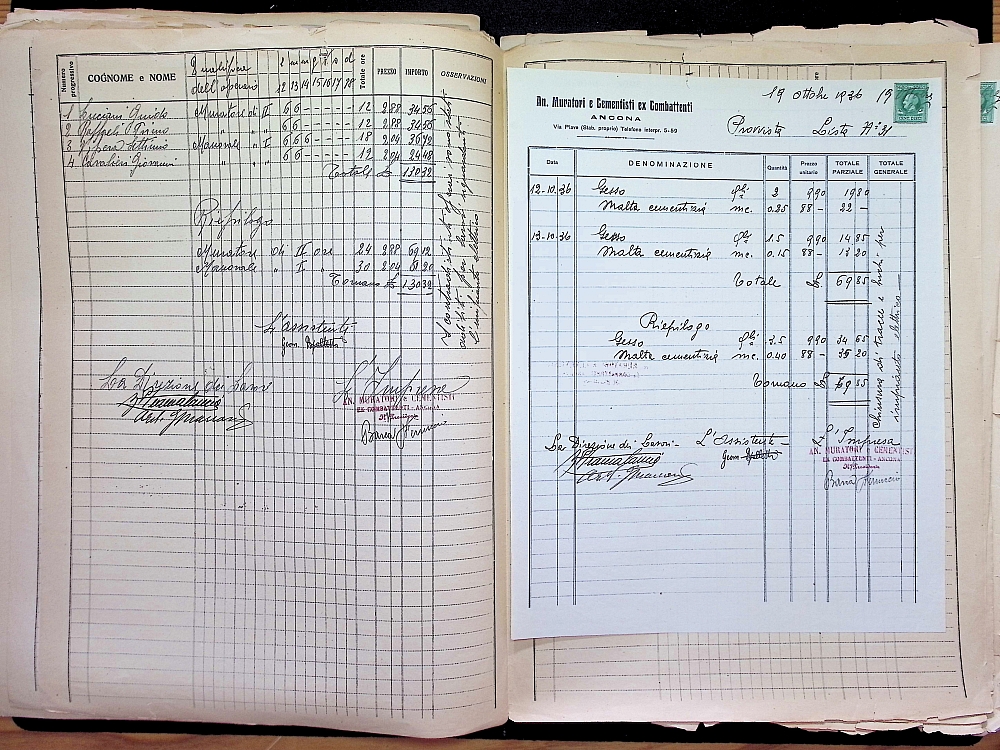 Numero progressivo
COGNOME e NOME
Qualifica dell'operaio
12 13 14 15 16 17 18
Totale ore
PREZZO
IMPORTO
OSSERVAZIONI
1 Luciani Guido Muratore di II 6 6 - - - - - 12 2.88 34.56
2 " " " 6 6 - - - - - 12 2.88 34.56
3 Manovale " I 6 6 6 - - - - 18 2.04 36.72
4 Cavalieri Giovanni " " " 6 6 - - - - - 12 2.04 24.48
Totale £ 130.32
Riepilogo
Muratore di II ore 24 2.88 69.12
Manovale " I " 30 2.04 61.20
Tornano £ 130.32
L'assistente
Geom.
La Direzione dei Lavori
L'Impresa
AN. MURATORI e CEMENTISTI
EX COMBATTENTI - ANCONA
Il Presidente
19 Ottobre 1936
19
An. Muratori e Cementisti ex Combattenti
ANCONA
Via Piave (Stab. proprio) Telefono interpr. 5-59
Provvista Lista N° 21
Data
DENOMINAZIONE
Quantità
Prezzo unitario
TOTALE PARZIALE
TOTALE GENERALE
12-10-36 Gesso Qli 2 9.90 19.80
Malta cementizia mc. 0.25 88 - 22 -
13-10-36 Gesso Qli 1.5 9.90 14.85
Malta cementizia mc. 0.15 88 - 13 20
Totale £ 69.85
Riepilogo
Gesso Qli 3.5 9.90 34 65
Malta cementizia mc. 0.40 88 - 35 20
Tornano £ 69.85
Chiusura di tracce e buchi per impianto elettrico
La Direzione dei Lavori
L'assistente
Geom.
L'Impresa
AN. MURATORI e CEMENTISTI
EX COMBATTENTI - ANCONA
Il Presidente